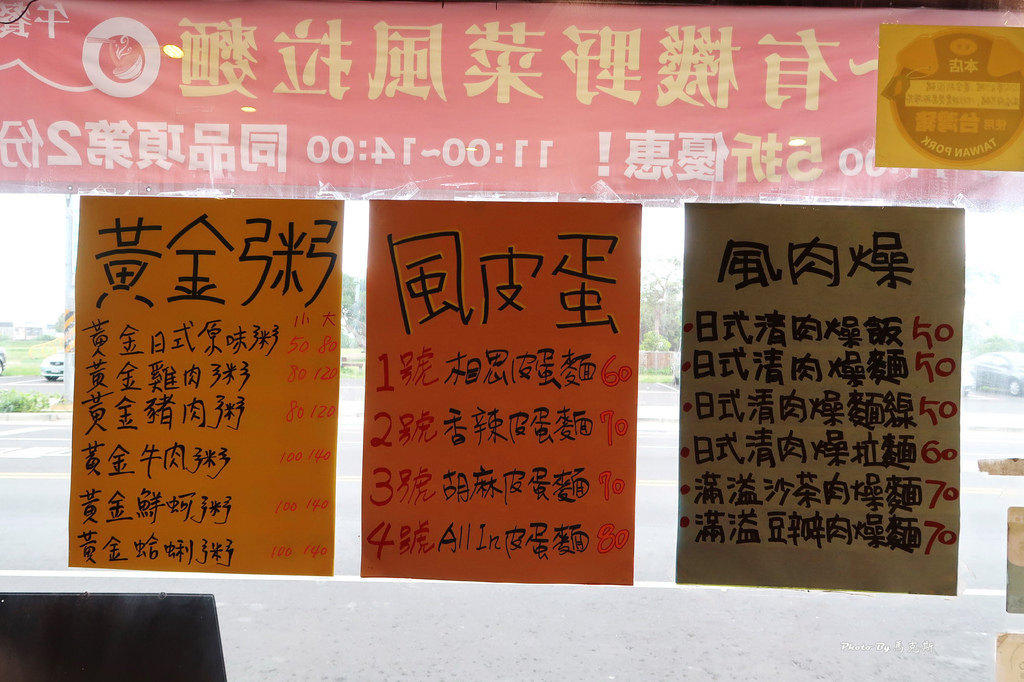 午餐
一有機野菜風拉麵
5折優惠! 11:00~14:00 同品項第2份
本店
使用台灣豬
TAIWAN PORK
黃金粥
小 大
黃金日式原味粥 50 80
黃金雞肉粥 80 120
黃金豬肉粥 80 120
黃金牛肉粥 100 140
黃金鮮蚵粥 100 140
黃金蛤蜊粥 100 140
風皮蛋
1號 相思皮蛋麵 60
2號 香辣皮蛋麵 70
3號 胡麻皮蛋麵 70
4號 All In皮蛋麵 80
風肉燥
•日式清肉燥飯 50
•日式清肉燥麵 50
•日式清肉燥麵線 50
•日式清肉燥拉麵 60
•滿溢沙茶肉燥麵 70
•滿溢豆瓣肉燥麵 70
Photo By 馬克斯